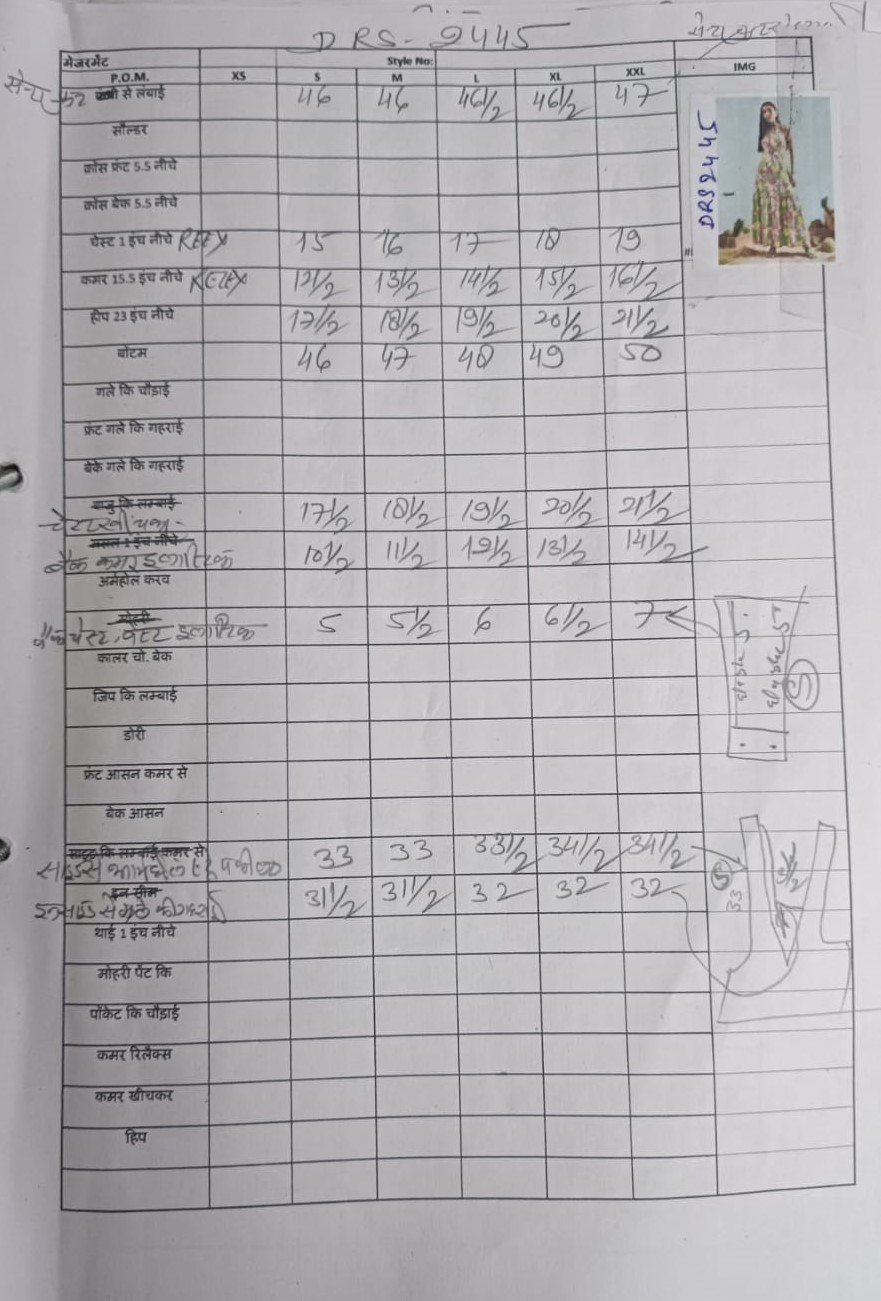 DRS-2445
मेजरमेंट Style No:
P.O.M. XS S M L XL XXL IMG
से लंबाई 46 46 46 1/2 46 1/2 47
DRS2445
सोल्डर
क्रोस फ्रंट 5.5 नीचे
क्रोस बेक 5.5 नीचे
चेस्ट 1 इंच नीचे 15 16 17 18 19
कमर 15.5 इंच नीचे 12 1/2 13 1/2 14 1/2 15 1/2 16 1/2
हीप 23 इंच नीचे 17 1/2 18 1/2 19 1/2 20 1/2 21 1/2
बोटम 46 47 48 49 50
गले कि चौड़ाई
फ्रंट गले कि गहराई
बेके गले कि गहराई
बाजु कि लम्बाई
चेस्ट 17 1/2 18 1/2 19 1/2 20 1/2 21 1/2
मसल 1 इंच नीचे
बैक कमर इलास्टिक 10 1/2 11 1/2 12 1/2 13 1/2 14 1/2
अर्महोल करव
मोहरी
बैक चेस्ट, वेस्ट इलास्टिक 5 5 1/2 6 6 1/2 7
कालर चो. बेक
जिप कि लम्बाई
डोरी
फ्रंट आसन कमर से
बेक आसन
साइड कि लम्बाई कमर से
33 33 33 1/2 34 1/2 34 1/2
S 33
इन सीम
इनसाईड से गले की गहराई 31 1/2 31 1/2 32 32 32
थाई 1 इंच नीचे
मोहरी पेंट कि
पॉकेट कि चौड़ाई
कमर रिलैक्स
कमर खीचकर
हिप